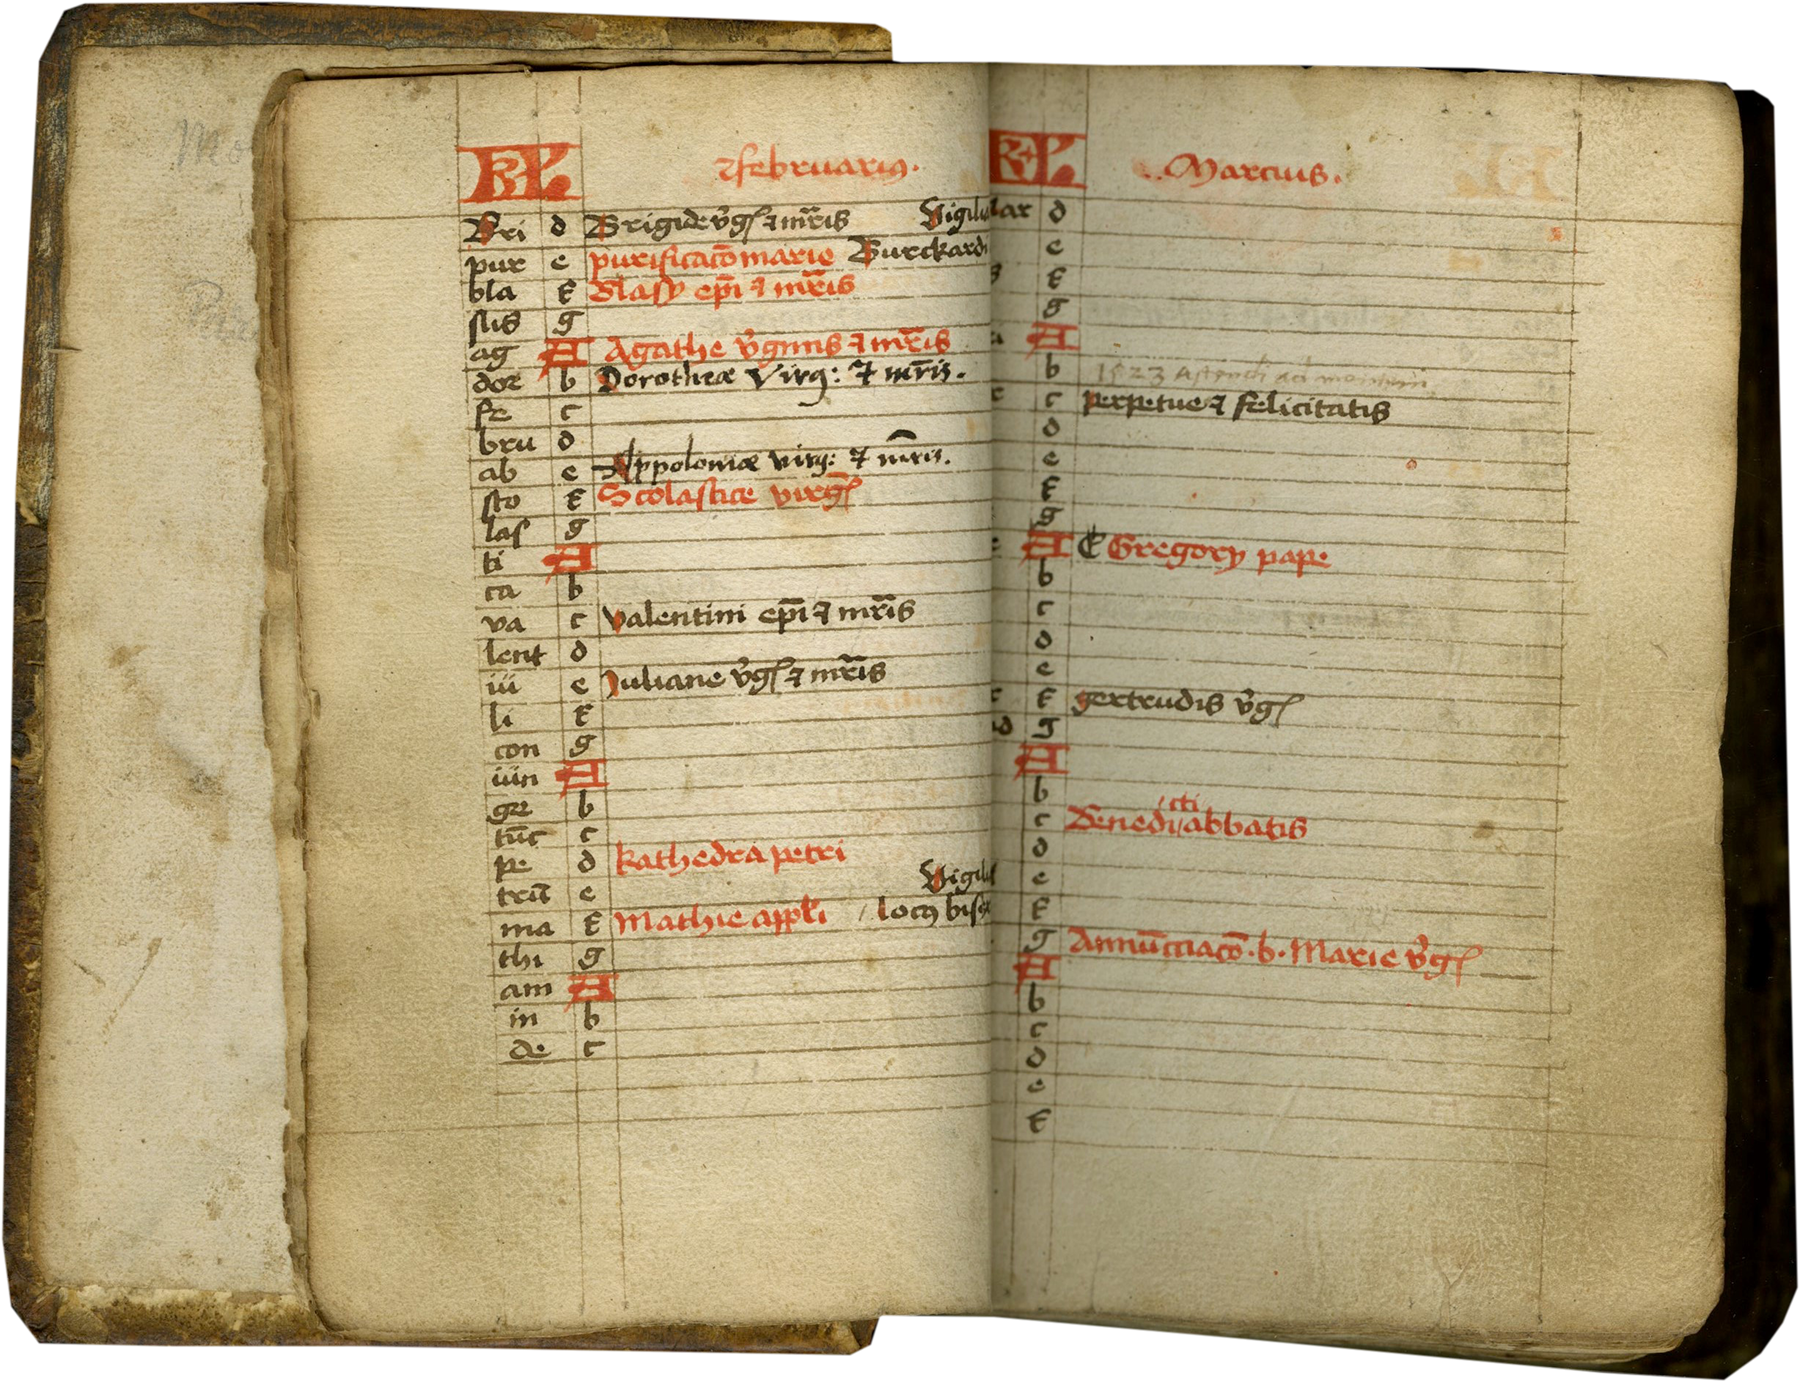 KL februarius.
Bri d Brigide v̄gſ ⁊ mr̄is Vigilia
pur e purificacō marie Burckardi
bla f Blasy ep̄i ⁊ mr̄is
ſus g
ag A Agathe v̄ginis ⁊ mr̄is
dor b Dorotheæ Virg: ⁊ mr̄is.
fe c
bru d
ab e Appoloniæ virg: ⁊ mr̄is.
ſco f Scolaſtice virgſ
laſ g
ti A
ca b
va c Valentini ep̄i ⁊ mr̄is
lent d
iu e Iuliane v̄gſ ⁊ mr̄is
li f
con g
iun A
ge b
tūc c
pe d kathedra petri
trū e Vigil
ma f Mathie appl̄i / locꝰ biſ
thi g
am A
in b
de c
KL Marcius.
ar d
e
f
g
A
b 1523
c perpetue ⁊ felicitatis
d
e
f
g
A Gregory pape
b
c
d
e
f gertrudis v̄gſ
g
A
b
c Benedicti abbatis
d
e
f
g Annūcciacō . b . Marie v̄gſ
A
b
c
d
e
f